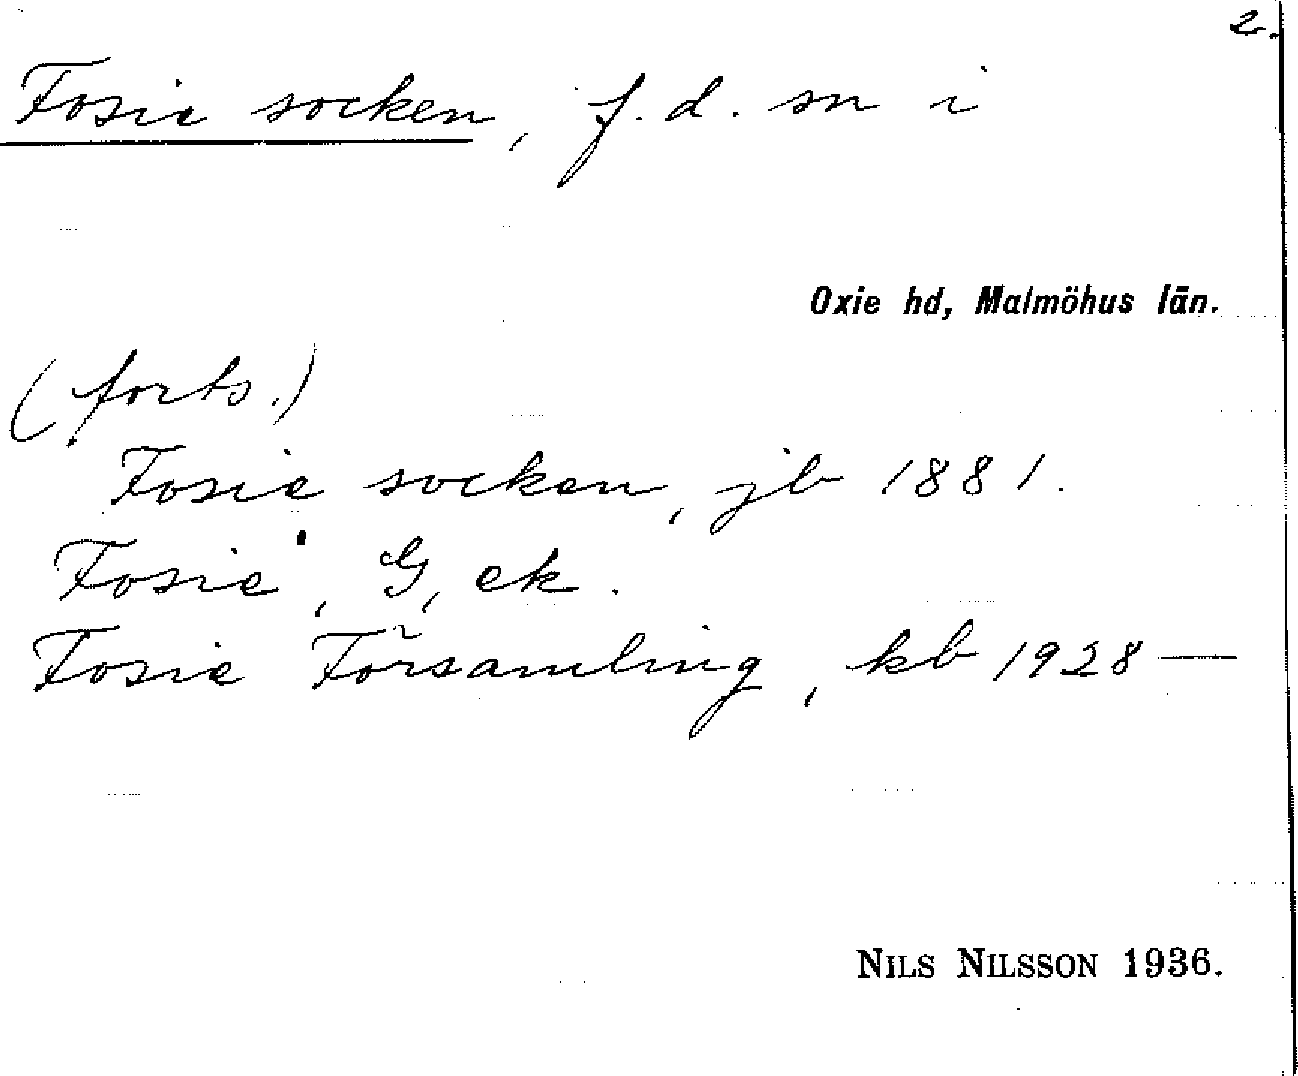 2.
Fosie socken, f. d. sn i
Oxie hd, Malmöhus län.
(forts.)
Fosie socken, jb 1881.
Fosie, G, ek.
Fosie Församling, kb 1928 —
NILS NILSSON 1936.